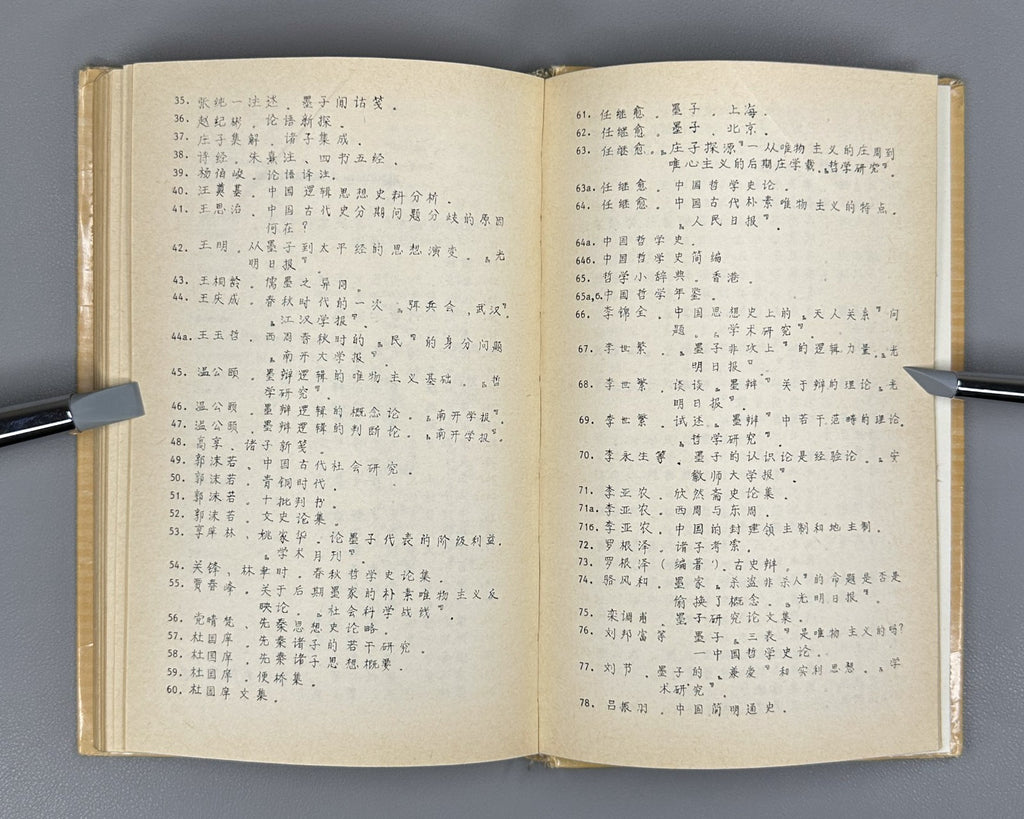 35. 张纯一注述. 墨子闲诂笺.
36. 赵纪彬. 论语新探.
37. 庄子集解. 诸子集成.
38. 诗经. 朱熹注、四书五经.
39. 杨伯峻. 论语译注.
40. 汪奠基. 中国逻辑思想史料分析.
41. 王思治. 中国古代史分期问题分歧的原因
何在?
42. 王明. 从墨子到太平经的思想演变. „光
明日报”.
43. 王桐龄. 儒墨之异同.
44. 王庆成. 春秋时代的一次 „弭兵会, 武汉”.
„江汉学报”.
44a. 王玉哲. 西周春秋时的 „民” 的身分问题
„南开大学报”
45. 温公颐. 墨辩逻辑的唯物主义基础. „哲
学研究”.
46. 温公颐. 墨辩逻辑的概念论. „南开学报”.
47. 温公颐. 墨辩逻辑的判断论. „南开学报”.
48. 高享. 诸子新笺.
49. 郭沫若. 中国古代社会研究.
50. 郭沫若. 青铜时代.
51. 郭沫若. 十批判书.
52. 郭沫若. 文史论集.
53. 李庠林、姚家华. 论墨子代表的阶级利益.
„学术月刊”
54. 关锋、林聿时. 春秋哲学史论集.
55. 贾春峰. 关于后期墨家的朴素唯物主义反
映论. „社会科学战线”.
56. 党晴梵. 先秦思想史论略.
57. 杜国庠. 先秦诸子的若干研究.
58. 杜国庠. 先秦诸子思想概要.
59. 杜国庠. 便桥集.
60. 杜国庠文集.
61. 任继愈. 墨子. 上海.
62. 任继愈. 墨子. 北京.
63. 任继愈. „庄子探源” 一从唯物主义的庄周到
唯心主义的后期庄学载. „哲学研究”.
63a. 任继愈. 中国哲学史论.
64. 任继愈. 中国古代朴素唯物主义的特点.
„人民日报”.
64a. 中国哲学史.
64б. 中国哲学史简编
65. 哲学小辞典. 香港.
65a,б. 中国哲学年鉴.
66. 李锦全. 中国思想史上的 „天人关系” 问
题. „学术研究”.
67. 李世繁. „墨子非攻上” 的逻辑力量. „光
明日报”.
68. 李世繁. 谈谈 „墨辩” 关于辩的理论 „光
明日报”.
69. 李世繁. 试述 „墨辩” 中若干范畴的理论.
„哲学研究”.
70. 李永生等. 墨子的认识论是经验论. „安
徽师大学报”.
71. 李亚农. 欣然斋史论集.
71a. 李亚农. 西周与东周.
71б. 李亚农. 中国的封建领主制和地主制.
72. 罗根泽. 诸子考索.
73. 罗根泽 (编著). 古史辩.
74. 骆风和. 墨家 „杀盗非杀人” 的命题是否是
偷换了概念. „光明日报”.
75. 栾调甫. 墨子研究论文集.
76. 刘邦富等 墨子 „三表” 是唯物主义的吗?
一中国哲学史论.
77. 刘节. 墨子的 „兼爱” 和实利思想. „学
术研究”.
78. 吕振羽. 中国简明通史.